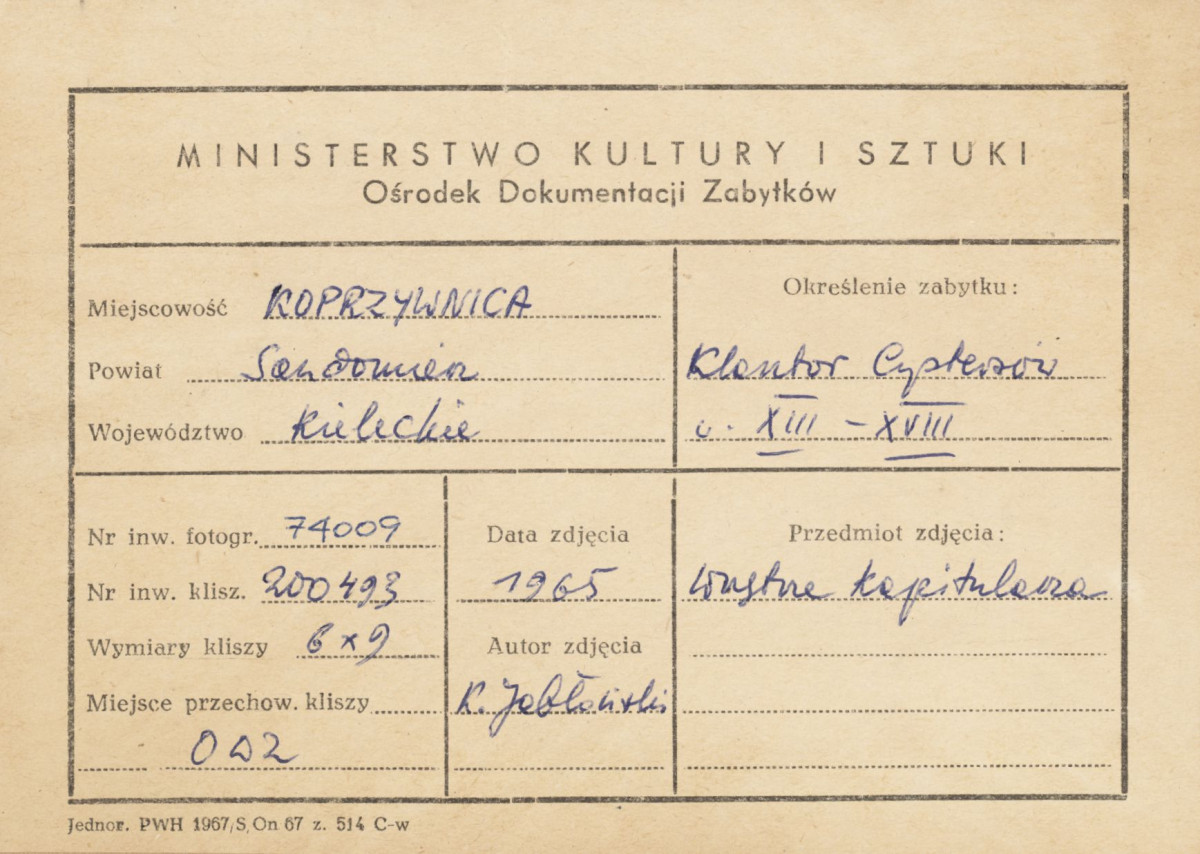 MINISTERSTWO KULTURY I SZTUKI
Ośrodek Dokumentacji Zabytków
Miejscowość KOPRZYWNICA
Powiat Sandomierz
Województwo Kieleckie
Określenie zabytku:
Klasztor Cystersów
w. XIII – XVIII
Nr inw. fotogr. 74009
Nr inw. klisz. 200493
Wymiary kliszy 6 x 9
Miejsce przechow. kliszy
ODZ
Data zdjęcia
1965
Autor zdjęcia
K. Jabłoński
Przedmiot zdjęcia:
wnętrze kapitularza
Jednor. PWH 1967/S, On 67 z. 514 C-w